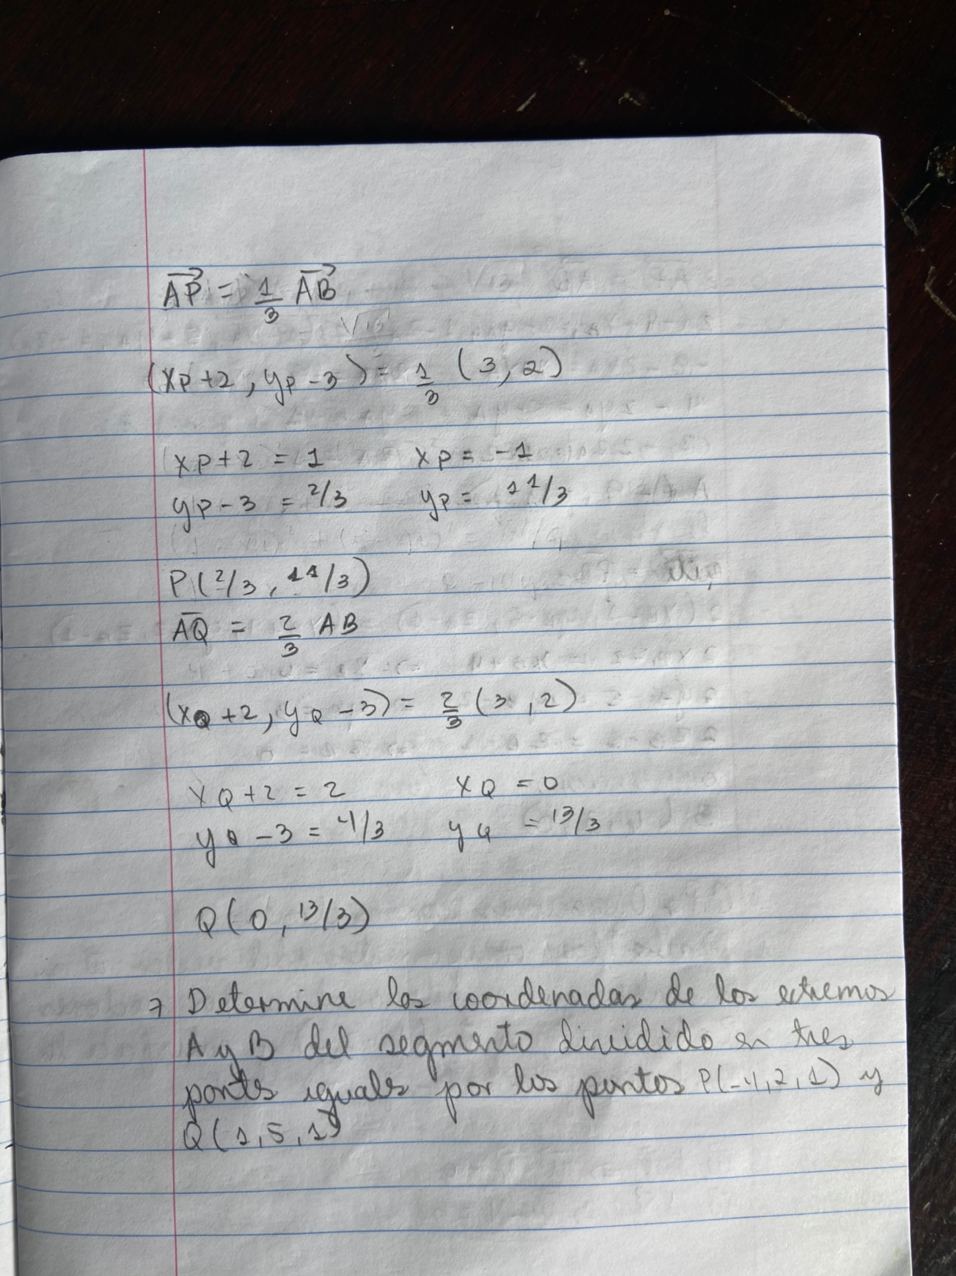 AP = 1/3 AB
(xp+2, yp-3) = 1/3 (3,2)
xp+2 = 1 xp = -1
yp-3 = 2/3 yp = 11/3
P(2/3, 11/3)
AQ = 2/3 AB
(xQ+2, yQ-3) = 2/3 (3,2)
xQ+2 = 2 xQ = 0
yQ-3 = 4/3 yQ = 13/3
Q(0, 13/3)
7 Determine las coordenadas de los extremos
A y B del segmento dividido en tres
partes iguales por los puntos P(-4,2,1) y
Q(1,5,1)